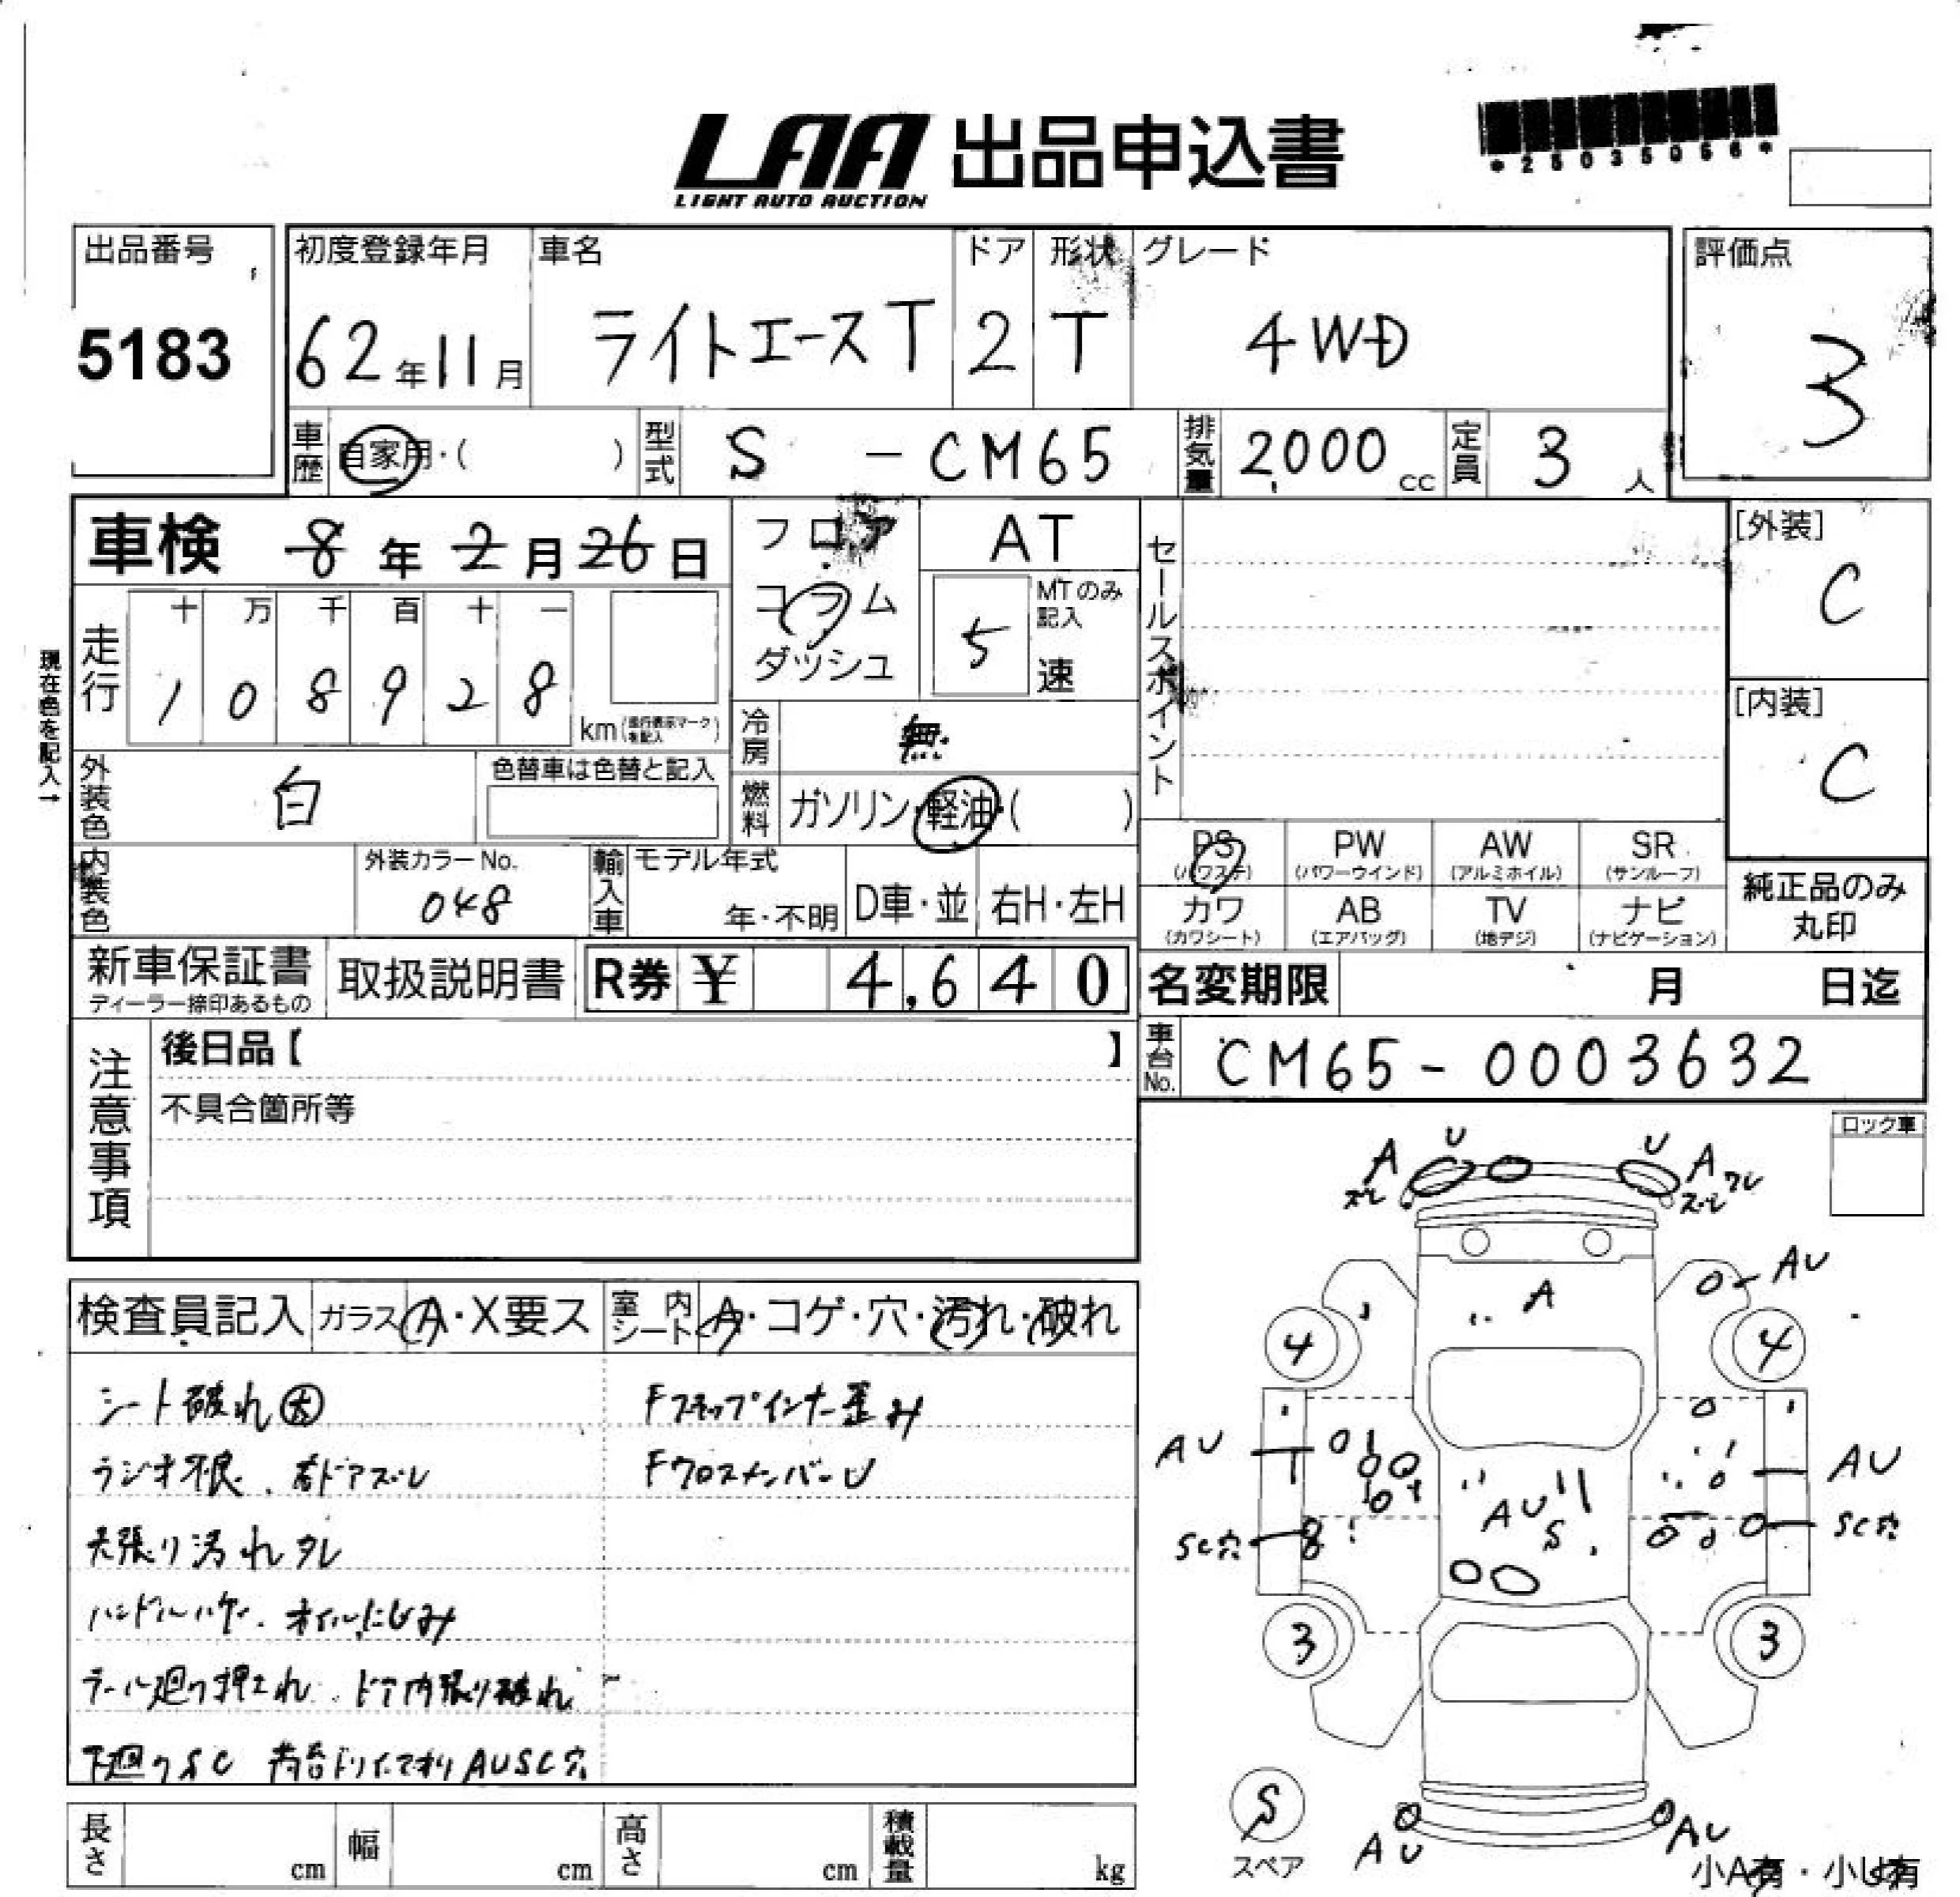 LAA 出品申込書
LIGHT AUTO AUCTION
*25035056*
出品番号
5183
初度登録年月
62年11月
車名
ライトエースT
ドア
2
形状
T
グレード
4WD
評価点
3
車歴 自家用・( )
型式 S - CM65
排気量 2000 cc
定員 3 人
車検 8年2月26日
フロア
コラム
ダッシュ
AT
MTのみ記入
5 速
セールスポイント
[外装]
C
[内装]
C
現在色を記入→
走行
十 万 千 百 十 一
1 0 8 9 2 8 km
冷房 無
燃料 ガソリン・軽油・( )
外装色 白
色替車は色替と記入
内装色
外装カラーNo.
048
輸入車
モデル年式
年・不明
D車・並
右H・左H
PS (パワステ)
PW (パワーウインド)
AW (アルミホイル)
SR (サンルーフ)
カワ (カワシート)
AB (エアバッグ)
TV (地デジ)
ナビ (ナビゲーション)
純正品のみ
丸印
新車保証書
ディーラー捺印あるもの
取扱説明書
R券 ¥ 4,640
名変期限 月 日迄
車台No. CM65-0003632
注意事項
後日品【 】
不具合箇所等
ロック車
検査員記入
ガラス A・X要ス
室内シート A・コゲ・穴・汚れ・破れ
シート破れ大
Fステップインナー歪み
ラジオ不良. 右ドアズレ
FクロスメンバーU
天張り汚れタレ
オイルにじみ
ドア内張り破れ
下廻りSC
AUSC穴
U U
A A
ズレ ズレ ワレ
AU
A
4 4
AU AU
AU
S
SC穴 SC穴
3 3
S
スペア
AU AU
小A有・小U有
長さ cm
幅 cm
高さ cm
積載量 kg